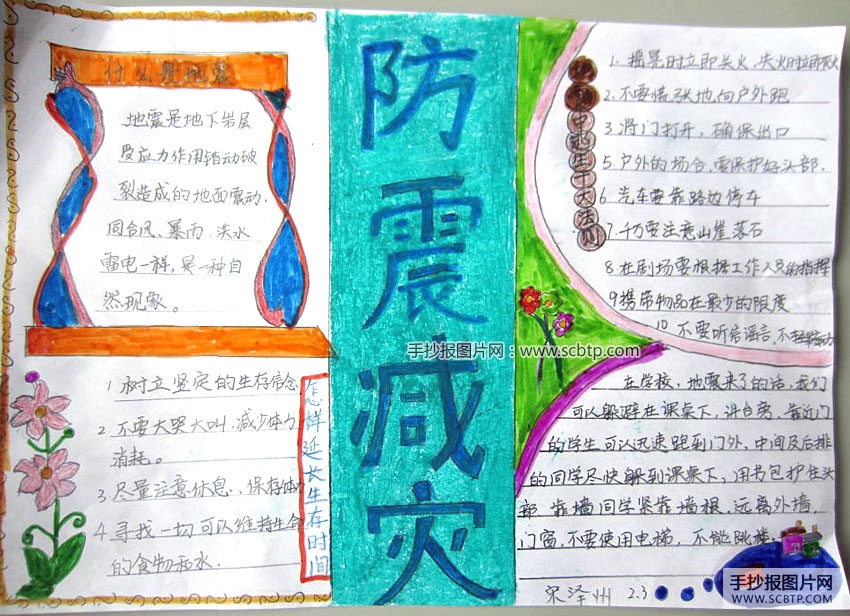 什么是地震
地震是地下岩层
受应力作用错动破
裂造成的地面震动.
同台风、暴雨、洪水
雷电一样,是一种自
然现象。
怎样延长生存时间
1 树立坚定的生存信念
2.不要大哭大叫.减少体力
消耗。
3、尽量注意休息.、保存体力
4.寻找一切可以维持生命
的食物和水.
防震减灾
中
生十大法则
1.摇晃时立即关火,失火时立即灭火
2.不要慌张地向户外跑
3 将门打开,确保出口
5.户外的场合,要保护好头部.
6 汽车要靠路边停车
7.千万要注意山崖落石
8.在剧场要根据工作人员的指挥
9携带物品在最少的限度
10.不要听信谣言.不轻举动
在学校,地震来了的话,我们
可以躲避在课桌下,讲台旁,靠近门
的学生可以迅速跑到门外,中间及后排
的同学尽快躲到课桌下,用书包护住头
部 靠墙同学紧靠墙根,远离外墙,
门窗,不要使用电梯,不能跳楼.
宋泽州 2.3
手抄报图片网:www.scbtp.com
手抄报图片网
WWW.SCBTP.COM